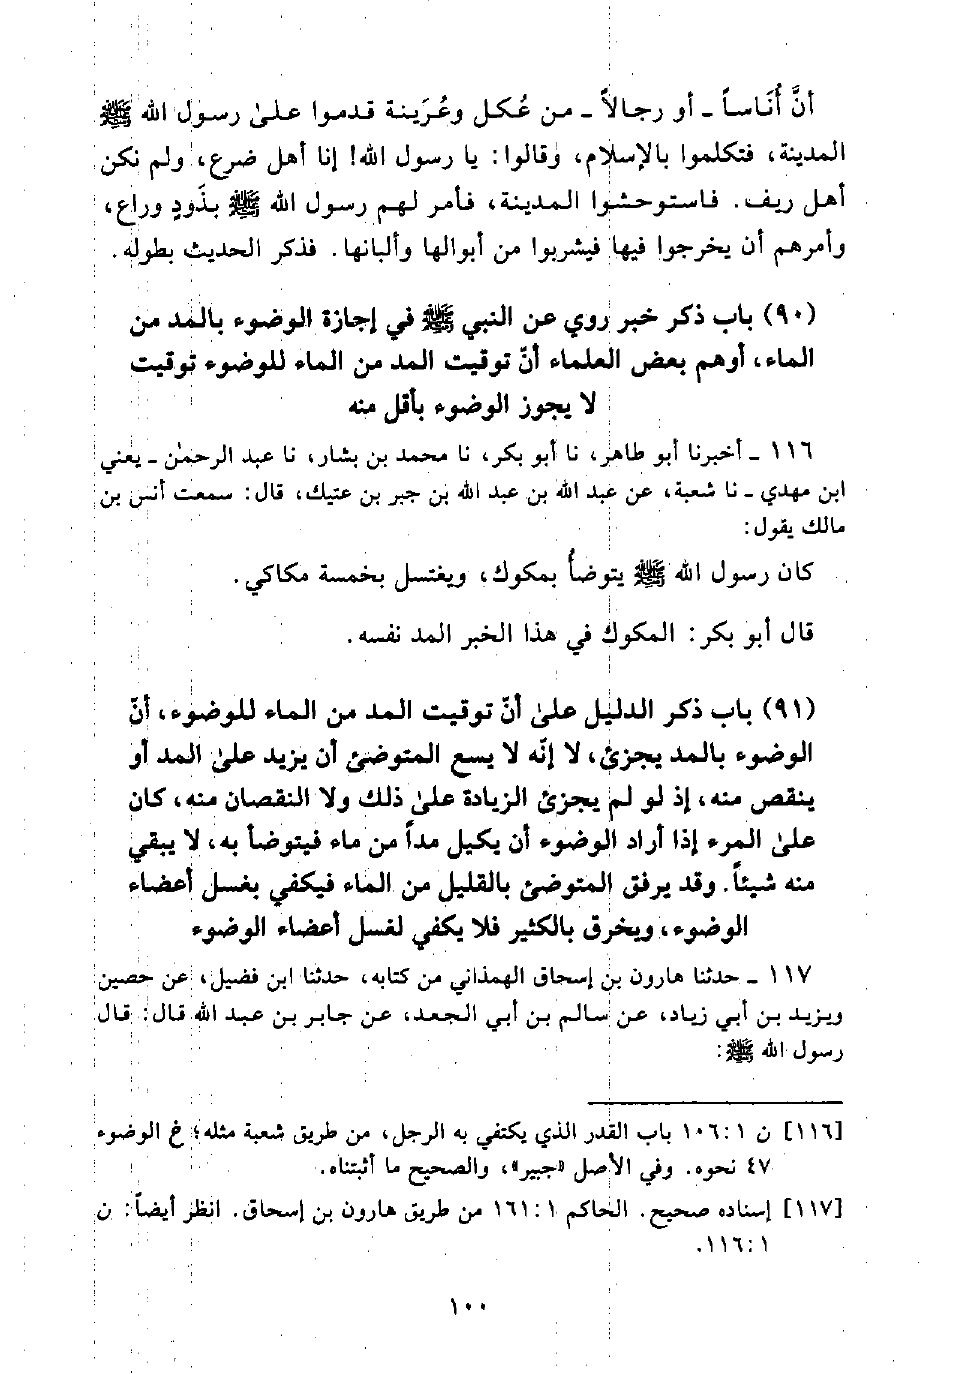 أنَّ أُنَاساً ـ أو رجالاً ـ من عُكل وعُرَينة قدموا علىٰ رسول الله ﷺ
المدينة، فتكلموا بالإسلام، وقالوا: يا رسول الله! إنا أهل ضرع، ولم نكن
أهل ريف. فاستوحشوا المدينة، فأمر لهم رسول الله ﷺ بذَودٍ وراع،
وأمرهم أن يخرجوا فيها فيشربوا من أبوالها وألبانها. فذكر الحديث بطوله.
(٩٠) باب ذكر خبر روي عن النبي ﷺ في إجازة الوضوء بالمد من
الماء، أوهم بعض العلماء أنّ توقيت المد من الماء للوضوء توقيت
لا يجوز الوضوء بأقل منه
١١٦ ـ أخبرنا أبو طاهر، نا أبو بكر، نا محمد بن بشار، نا عبد الرحمٰن ـ يعني
ابن مهدي ـ نا شعبة، عن عبد الله بن عبد الله بن جبر بن عتيك، قال: سمعت أنس بن
مالك يقول:
كان رسول الله ﷺ يتوضأُ بمكوك، ويغتسل بخمسة مكاكي.
قال أبو بكر: المكوك في هذا الخبر المد نفسه.
(٩١) باب ذكر الدليل علىٰ أنّ توقيت المد من الماء للوضوء، أنّ
الوضوء بالمد يجزئ، لا إنّه لا يسع المتوضئ أن يزيد علىٰ المد أو
ينقص منه، إذ لو لم يجزئ الزيادة علىٰ ذلك ولا النقصان منه، كان
علىٰ المرء إذا أراد الوضوء أن يكيل مداً من ماء فيتوضأ به، لا يبقي
منه شيئاً. وقد يرفق المتوضئ بالقليل من الماء فيكفي بغسل أعضاء
الوضوء، ويخرق بالكثير فلا يكفي لغسل أعضاء الوضوء
١١٧ ـ حدثنا هارون بن إسحاق الهمذاني من كتابه، حدثنا ابن فضيل، عن حصين
ويزيد بن أبي زياد، عن سالم بن أبي الجعد، عن جابر بن عبد الله قال: قال
رسول الله ﷺ:
[١١٦] ن ١:١٠٦ باب القدر الذي يكتفي به الرجل، من طريق شعبة مثله؛ خ الوضوء
٤٧ نحوه. وفي الأصل «جبير»، والصحيح ما أثبتناه.
[١١٧] إسناده صحيح. الحاكم ١:١٦١ من طريق هارون بن إسحاق. انظر أيضاً: ن
١:١١٦.
١٠٠